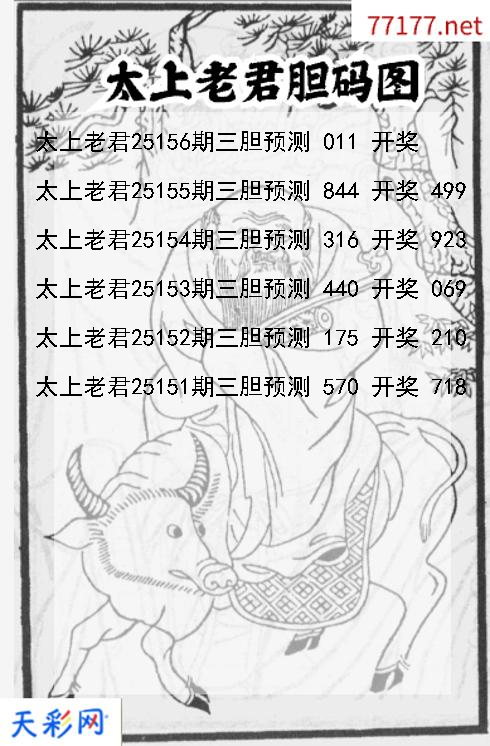 77177.net
太上老君胆码图
太上老君25156期三胆预测 011 开奖
太上老君25155期三胆预测 844 开奖 499
太上老君25154期三胆预测 316 开奖 923
太上老君25153期三胆预测 440 开奖 069
太上老君25152期三胆预测 175 开奖 210
太上老君25151期三胆预测 570 开奖 718
天彩网